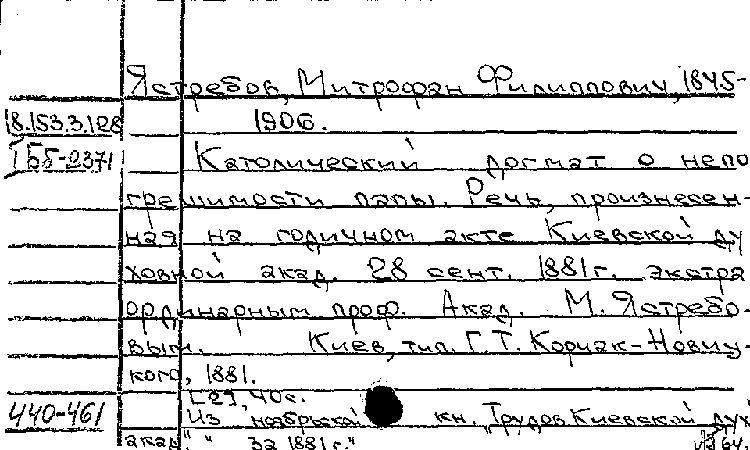 Ястребов, Митрофан Филиппович, 1845-
18.153.3.128 1906.
I Бб-2371 Католический догмат о непо
грешимости папы. Речь, произнесен-
ная на годичном акте Киевской ду
ховной акад. 28 сент. 1881 г. экстра
ординарным проф. Акад. М. Ястребо-
вым. Киев, тип. Г. Т. Корчак-Новиц-
кого, 1881.
[2], 40 с.
440-461 Из ноябрьской кн. „Трудов Киевской дух
акад." за 1881 г."
64.